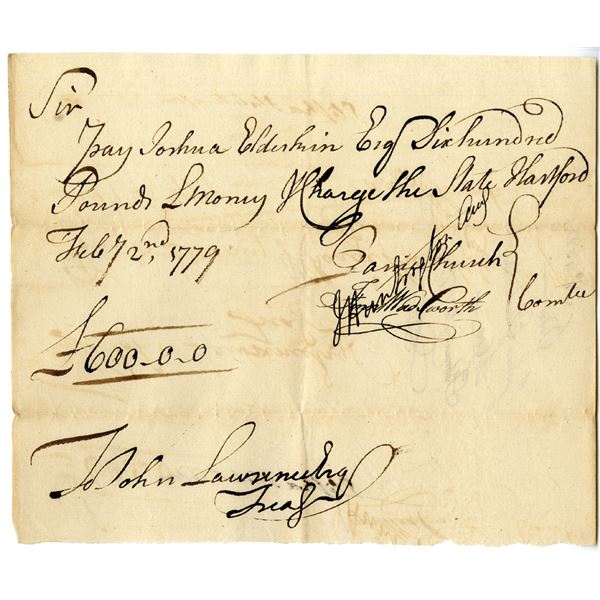 Sir
Pay Joshua Elderkin Esq Six hundred
Pounds L Money & Charge the State Hartford
Feby 2nd, 1779
Church
Wadsworth
Comtee
£600-0-0
To John Lawrence Esq
Treasr